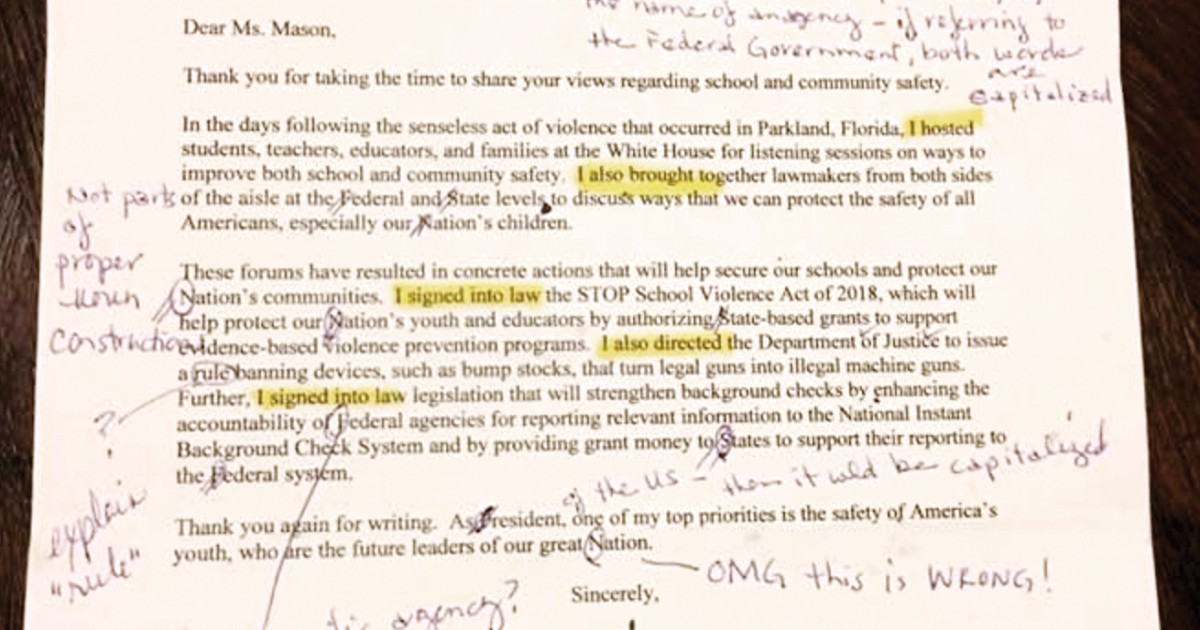 the name of an agency – if referring to
the Federal Government, both words
are
capitalized
Dear Ms. Mason,
Thank you for taking the time to share your views regarding school and community safety.
In the days following the senseless act of violence that occurred in Parkland, Florida, I hosted
students, teachers, educators, and families at the White House for listening sessions on ways to
improve both school and community safety. I also brought together lawmakers from both sides
of the aisle at the Federal and State levels to discuss ways that we can protect the safety of all
Americans, especially our Nation's children.
Not parts
of
proper
noun
construction
These forums have resulted in concrete actions that will help secure our schools and protect our
Nation's communities. I signed into law the STOP School Violence Act of 2018, which will
help protect our Nation's youth and educators by authorizing State-based grants to support
evidence-based violence prevention programs. I also directed the Department of Justice to issue
a rule banning devices, such as bump stocks, that turn legal guns into illegal machine guns.
Further, I signed into law legislation that will strengthen background checks by enhancing the
accountability of Federal agencies for reporting relevant information to the National Instant
Background Check System and by providing grant money to States to support their reporting to
the Federal system.
?
explain
"rule"
of the US – then it wld be capitalized
Thank you again for writing. As President, one of my top priorities is the safety of America's
youth, who are the future leaders of our great Nation.
OMG this is WRONG!
Sincerely,
agency?